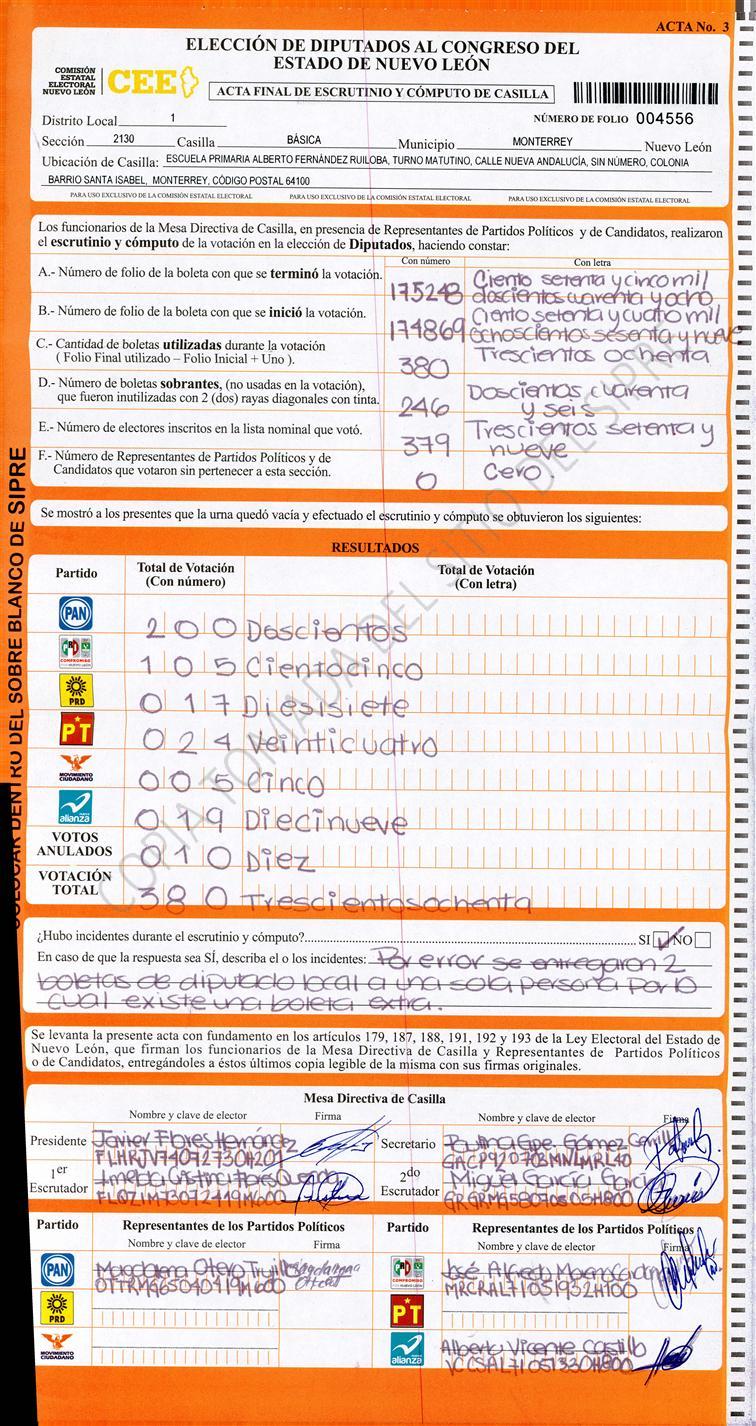 ACTA No. 3
ELECCIÓN DE DIPUTADOS AL CONGRESO DEL
ESTADO DE NUEVO LEÓN
COMISIÓN
ESTATAL
ELECTORAL
NUEVO LEÓN
CEE
ACTA FINAL DE ESCRUTINIO Y CÓMPUTO DE CASILLA
Distrito Local 1 NÚMERO DE FOLIO 004556
Sección 2130 Casilla BÁSICA Municipio MONTERREY Nuevo León
Ubicación de Casilla: ESCUELA PRIMARIA ALBERTO FERNÁNDEZ RUILOBA, TURNO MATUTINO, CALLE NUEVA ANDALUCÍA, SIN NÚMERO, COLONIA
BARRIO SANTA ISABEL, MONTERREY, CÓDIGO POSTAL 64100
PARA USO EXCLUSIVO DE LA COMISIÓN ESTATAL ELECTORAL PARA USO EXCLUSIVO DE LA COMISIÓN ESTATAL ELECTORAL PARA USO EXCLUSIVO DE LA COMISIÓN ESTATAL ELECTORAL
Los funcionarios de la Mesa Directiva de Casilla, en presencia de Representantes de Partidos Políticos y de Candidatos, realizaron
el escrutinio y cómputo de la votación en la elección de Diputados, haciendo constar:
Con número Con letra
A.- Número de folio de la boleta con que se terminó la votación. 175248 Ciento setenta y cinco mil
doscientos cuarenta y ocho
B.- Número de folio de la boleta con que se inició la votación. 174869 Ciento setenta y cuatro mil
ochoscientos sesenta y nueve
C.- Cantidad de boletas utilizadas durante la votación
( Folio Final utilizado – Folio Inicial + Uno ). 380 Trescientos ochenta
D.- Número de boletas sobrantes, (no usadas en la votación),
que fueron inutilizadas con 2 (dos) rayas diagonales con tinta. 246 Doscientos cuarenta
y seis
E.- Número de electores inscritos en la lista nominal que votó. 379 Trescientos setenta y
nueve
F.- Número de Representantes de Partidos Políticos y de
Candidatos que votaron sin pertenecer a esta sección. 0 Cero
Se mostró a los presentes que la urna quedó vacía y efectuado el escrutinio y cómputo se obtuvieron los siguientes:
RESULTADOS
Partido Total de Votación Total de Votación
(Con número) (Con letra)
PAN 200 Doscientos
PRD COMPROMISO 105 Cientocinco
PRD 017 Diesisiete
PT 024 Veinticuatro
MOVIMIENTO CIUDADANO 005 Cinco
alianza 019 Diecinueve
VOTOS
ANULADOS 010 Diez
VOTACIÓN
TOTAL 380 Trescientosochenta
¿Hubo incidentes durante el escrutinio y cómputo? SI ✓ NO
En caso de que la respuesta sea SÍ, describa el o los incidentes: Por error se entregaron 2
boletas de diputado local a una sola persona por lo
cual existe una boleta extra.
Se levanta la presente acta con fundamento en los artículos 179, 187, 188, 191, 192 y 193 de la Ley Electoral del Estado de
Nuevo León, que firman los funcionarios de la Mesa Directiva de Casilla y Representantes de Partidos Políticos
o de Candidatos, entregándoles a éstos últimos copia legible de la misma con sus firmas originales.
Mesa Directiva de Casilla
Nombre y clave de elector Firma Nombre y clave de elector Firma
Presidente Javier Flores Hernández Secretario Gpe. Gómez
FLHRJV74092730H201
1er
Escrutador Flores
2do
Escrutador Miguel García García
Partido Representantes de los Partidos Políticos Partido Representantes de los Partidos Políticos
Nombre y clave de elector Firma Nombre y clave de elector Firma
PAN Magdalena Otero Trujillo
OTTRMG65040419M600
José Alfredo Moreno
MRCRAL71051932H100
PRD
PT
MOVIMIENTO CIUDADANO
alianza Alberto Vicente Castillo
COLOCAR DENTRO DEL SOBRE BLANCO DE SIPRE
COPIA TOMADA DEL SITIO DEL SIPRE